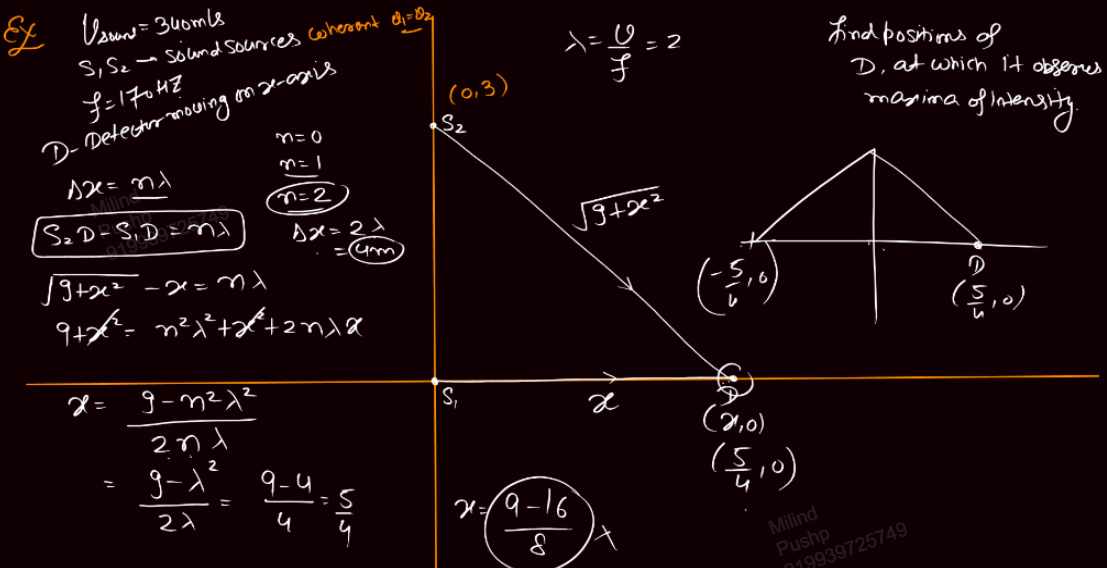 Ex
Vsound = 340m/s
S₁S₂ → sound sources coherent θ₁=θ₂
f=170HZ
D- Detector moving on x-axis
Δx = nλ
S₂D - S₁D = nλ
√9+x² - x = nλ
9+x² = n²λ²+x²+2nλx
x = 9-n²λ² / 2nλ
= 9-λ² / 2λ = 9-4 / 4 = 5/4
n=0
n=1
n=2
Δx = 2λ
= 4m
(0,3)
S₂
√9+x²
S₁
x
D
(x,0)
(5/4,0)
x = 9-16 / 8 x
λ = v/f = 2
find positions of
D, at which it observes
maxima of Intensity.
(-5/4,0)
D
(5/4,0)
Milind
Pushp
919939725749
Milind
Pushp
919939725749